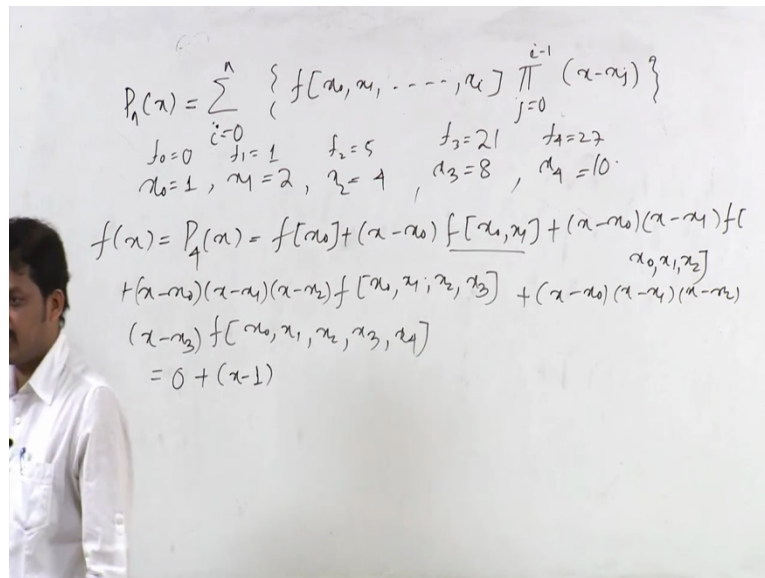 Pₙ(x) = Σ_{i=0}^{n} { f[x₀, x₁, ....., xᵢ] Π_{j=0}^{i-1} (x-xⱼ) }
f₀=0 f₁=1 f₂=5 f₃=21 f₄=27
x₀=1, x₁=2, x₂=4, x₃=8, x₄=10.
f(x) = P₄(x) = f[x₀]+(x-x₀) f[x₀,x₁]+(x-x₀)(x-x₁)f[
x₀,x₁,x₂]
+(x-x₀)(x-x₁)(x-x₂)f[x₀,x₁,x₂,x₃] +(x-x₀)(x-x₁)(x-x₂)
(x-x₃) f[x₀,x₁,x₂,x₃,x₄]
= 0+(x-1)